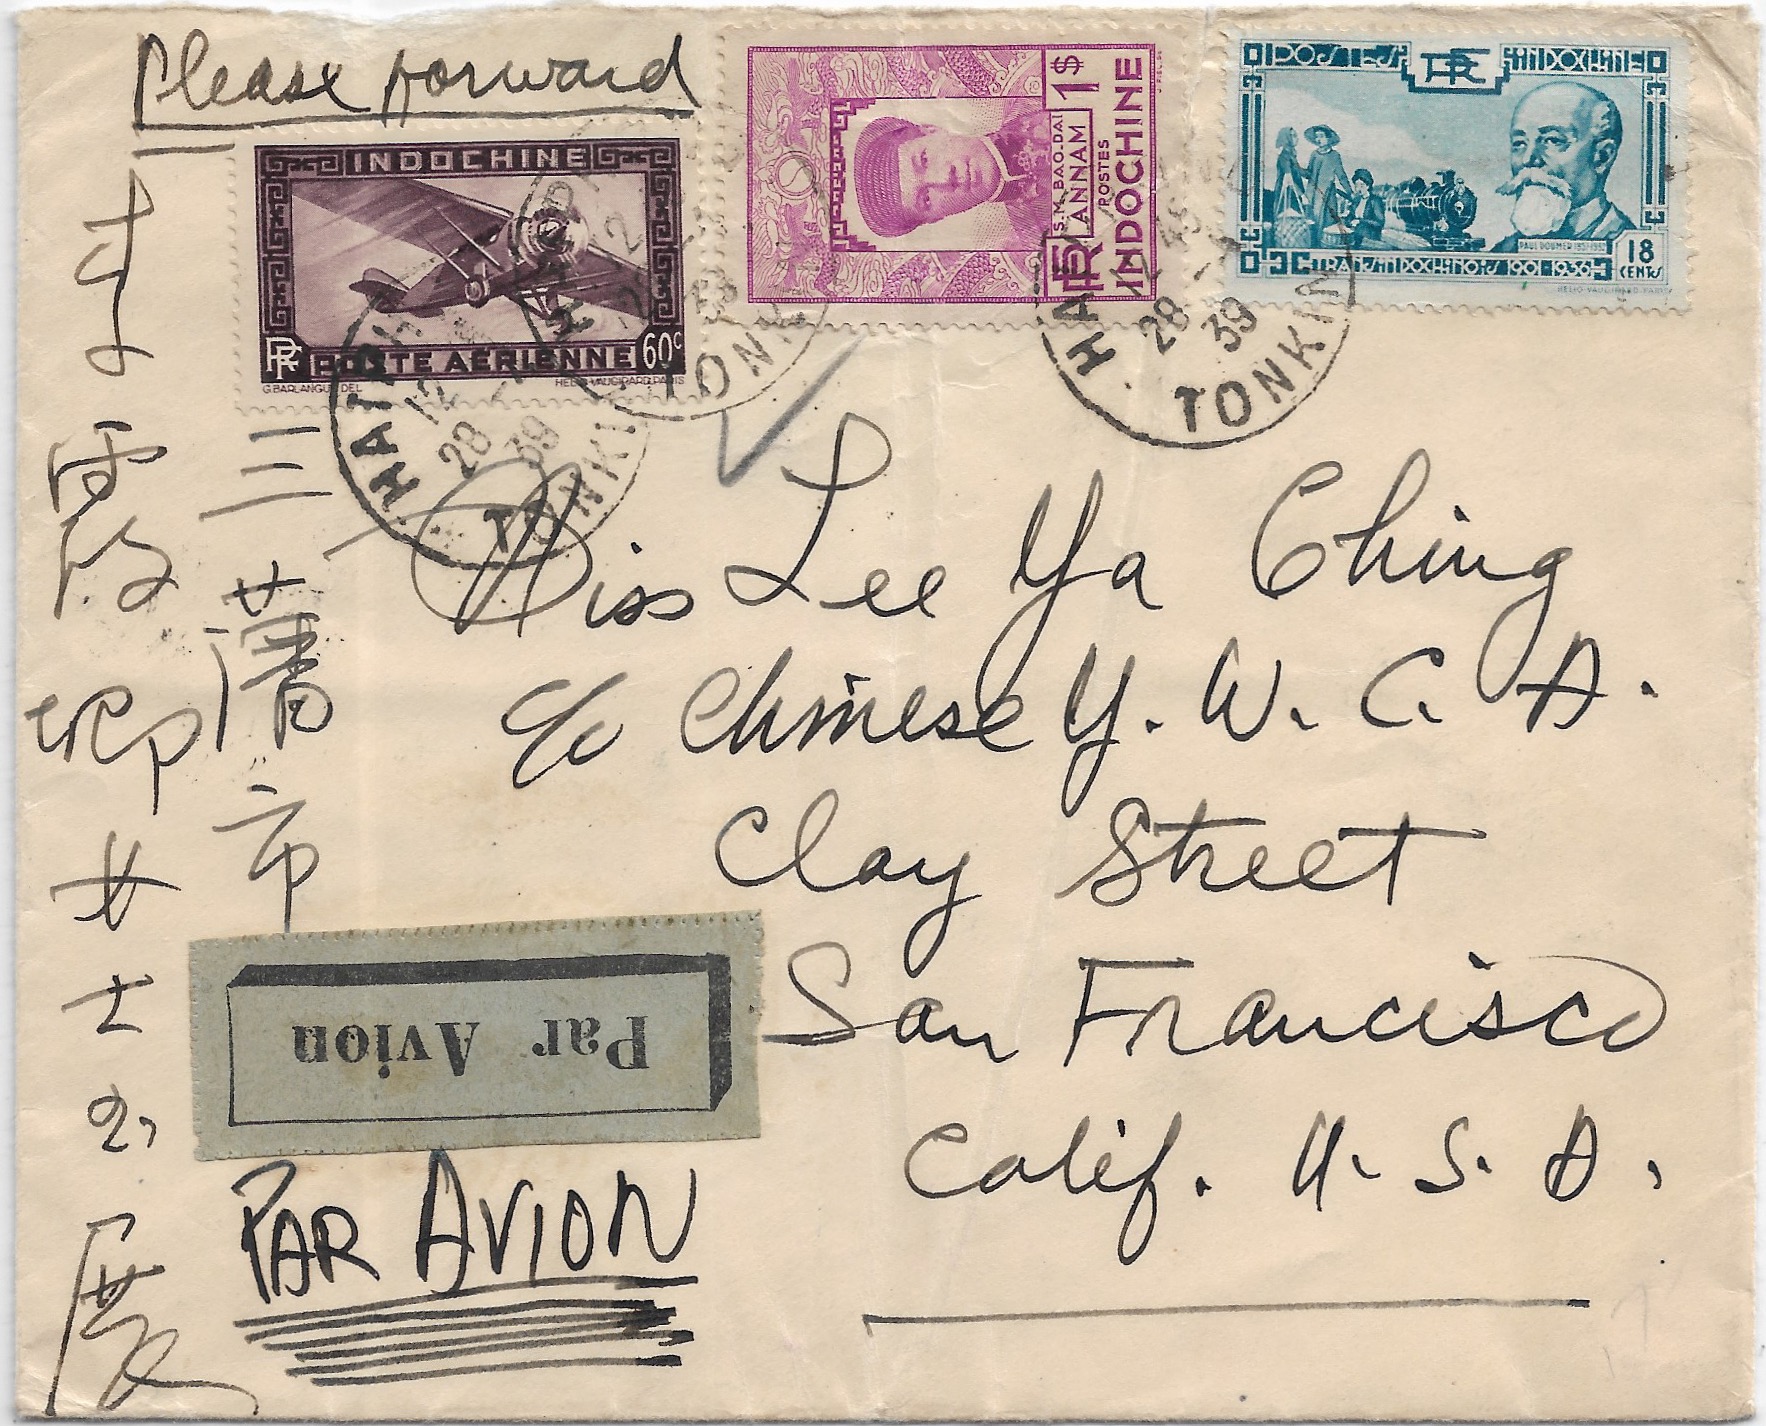 Please forward
INDOCHINE
RF POSTE AÉRIENNE 60c
G. BARLANGUE DEL.
HELIO VAUGIRARD PARIS
S.M. BAO.DAÏ
ANNAM 1$
POSTES
RF INDOCHINE
POSTES RF INDOCHINE
PAUL DOUMER 1857-1932
18 CENTS
TRANSINDOCHINOIS 1901-1936
HELIO-VAUGIRARD-PARIS
HAIPH
12
28 39
TONKIN
TONK
HA
28 39
TONKIN
三藩市
女士
展
Miss Lee Ya Ching
c/o Chinese Y. W. C. A.
Clay Street
San Francisco
Calif. U. S. A.
Par Avion
PAR AVION